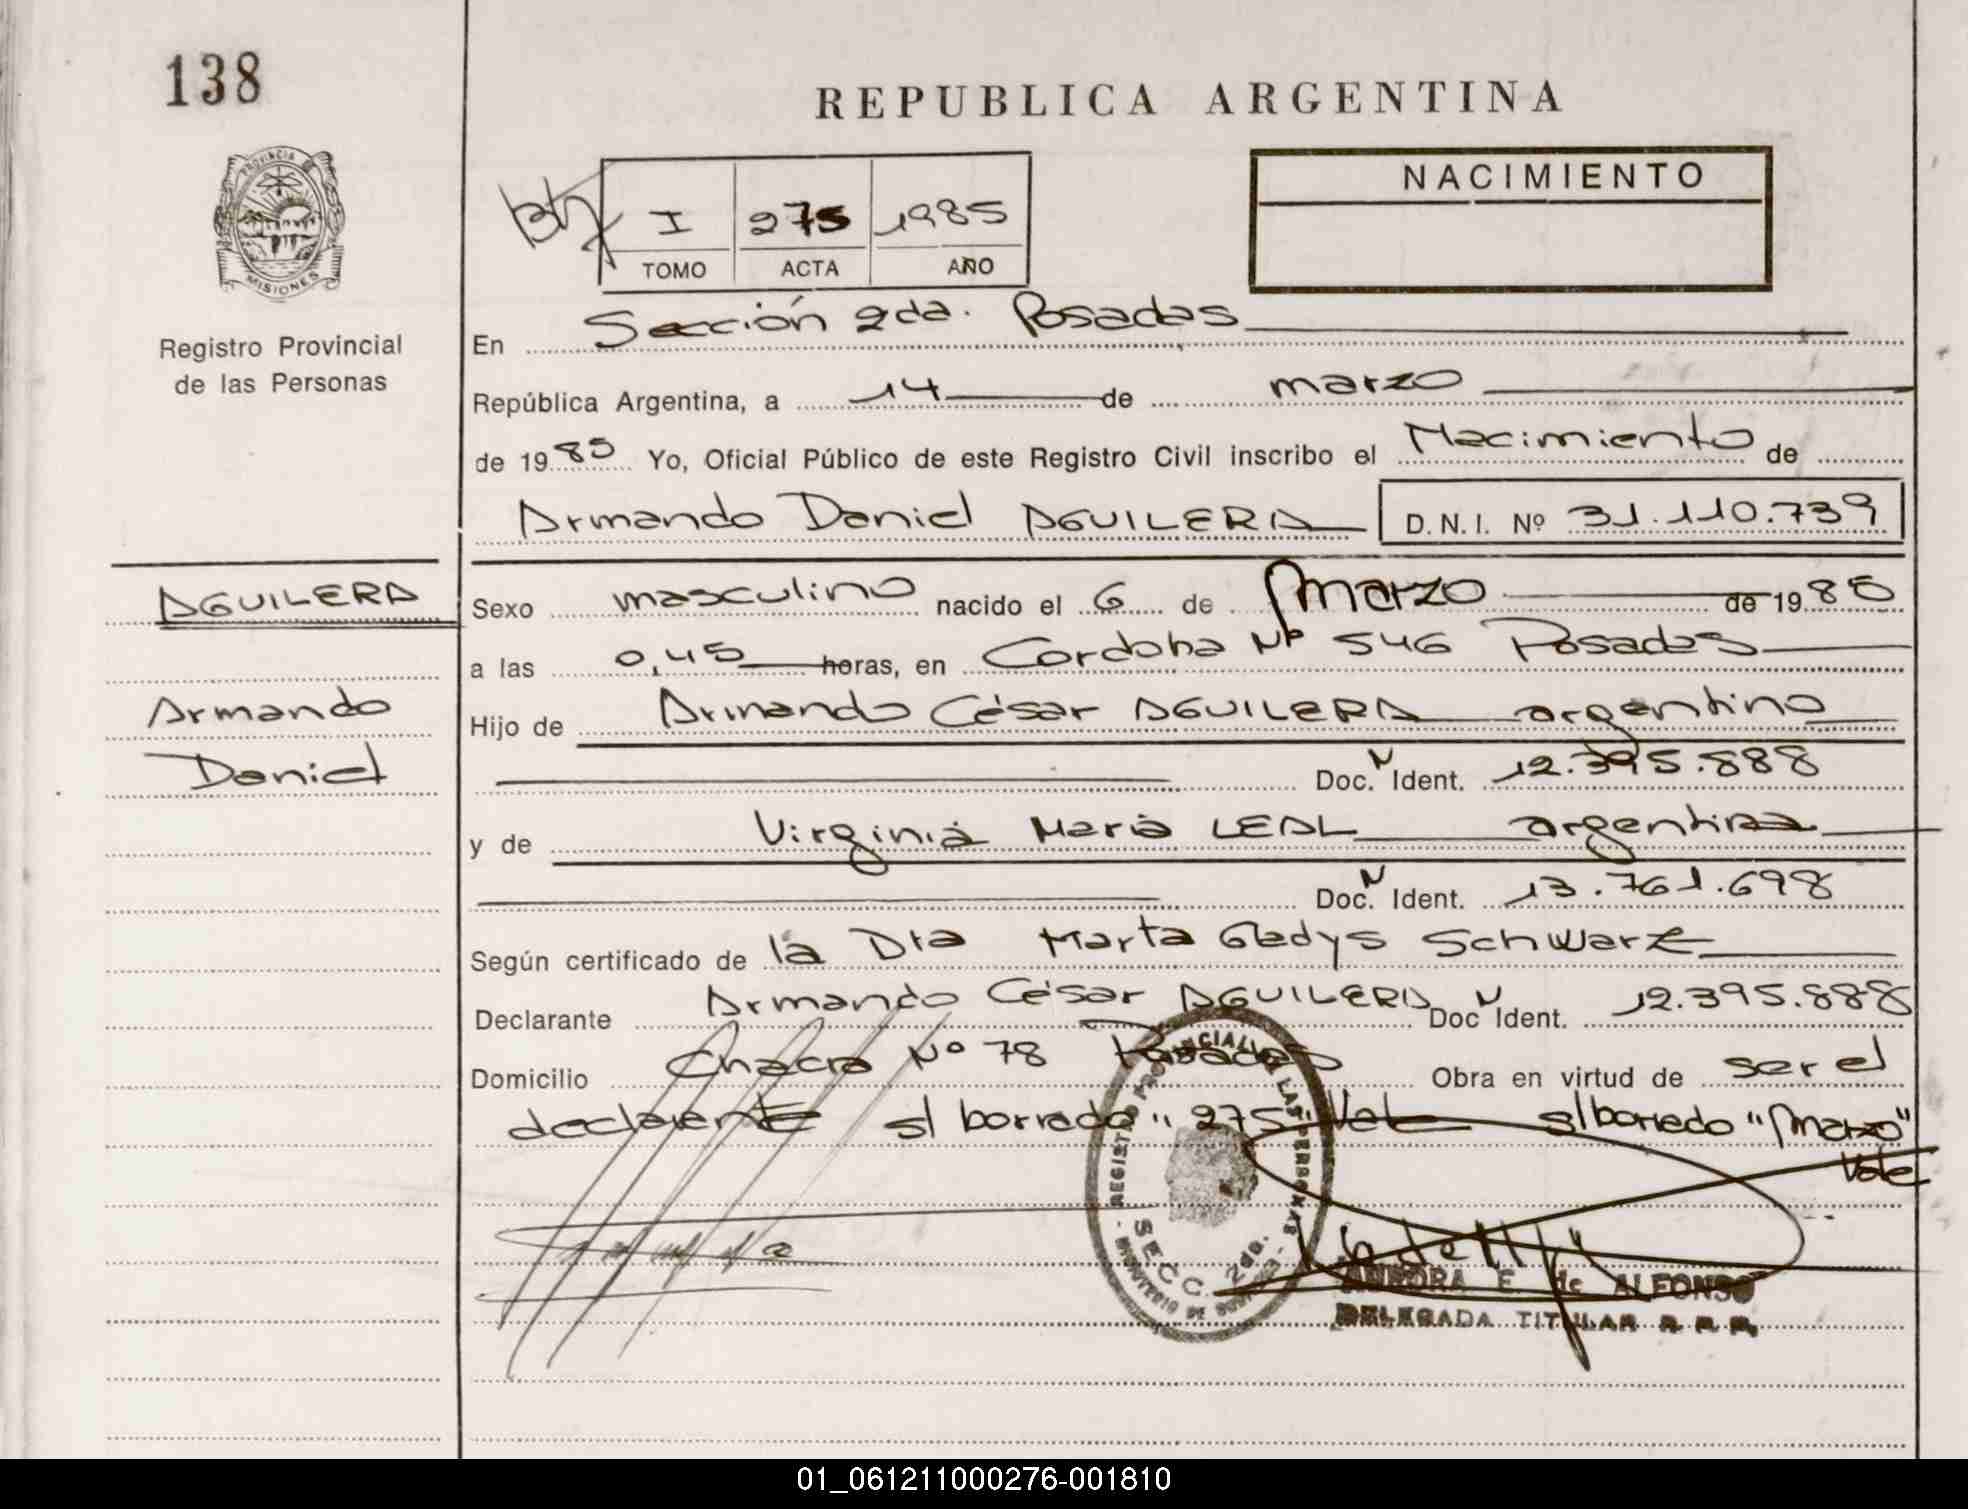 138
REPUBLICA ARGENTINA
NACIMIENTO
I 275 1985
TOMO ACTA AÑO
PROVINCIA DE MISIONES
Registro Provincial
de las Personas
En Sección 2da. Posadas
República Argentina, a 14 de marzo
de 1985 Yo, Oficial Público de este Registro Civil inscribo el Nacimiento de
Armando Daniel AGUILERA D.N.I. Nº 31.110.739
AGUILERA
Armando
Daniel
Sexo masculino nacido el 6 de Marzo de 1985
a las 0,45 horas, en Cordoba Nº 546 Posadas
Hijo de Armando César AGUILERA argentino
Doc. N Ident. 12.395.888
y de Virginia Maria LEAL argentina
Doc. N Ident. 13.761.698
Según certificado de la Dra Marta Gladys Schwarz
Declarante Armando César AGUILERA Doc N Ident. 12.395.888
Domicilio Chacra Nº 78 Posadas Obra en virtud de ser el
declarante s/ borrado "275" Vale s/borrado "Marzo"
Vale
REGISTRO PROVINCIAL DE LAS PERSONAS
SECC. 2da.
AURORA E. de ALFONSO
DELEGADA TITULAR R. P. P.
01_061211000276-001810